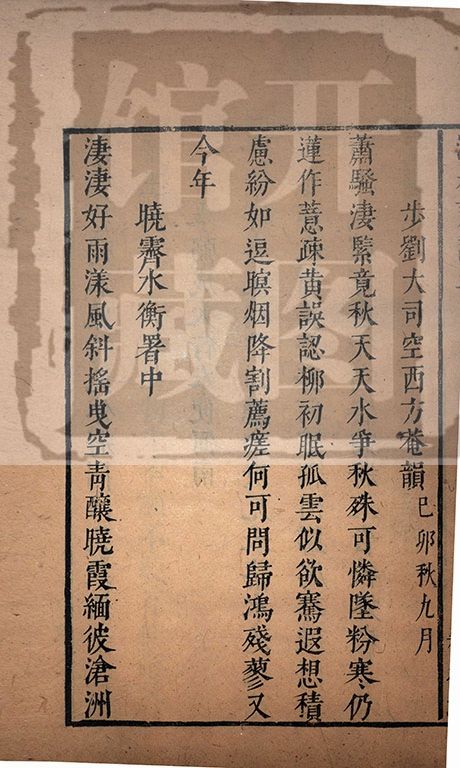 步劉大司空西方菴韻 己卯秋九月
蕭騷淒緊竟秋天天水爭秋殊可憐墜粉寒仍
蓮作薏疎黄誤認柳初眠孤雲似欲騫遐想積
慮紛如逗暝烟降割薦瘥何可問歸鴻殘蓼又
今年
曉霽水衡署中
淒淒好雨漾風斜搖曳空青釀曉霞緬彼滄洲
开图馆藏